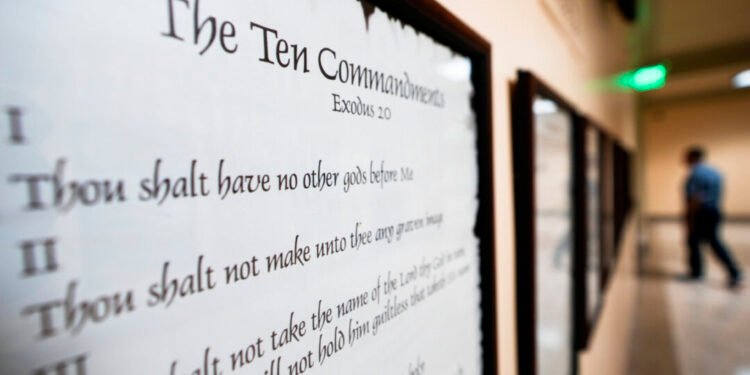 The Ten Commandments
Exodus 20
I
Thou shalt have no other gods before Me
II
Thou shalt not make unto thee any graven image
III
shalt not take the name of the Lord thy God in vain
will not hold him guiltless that taketh His name